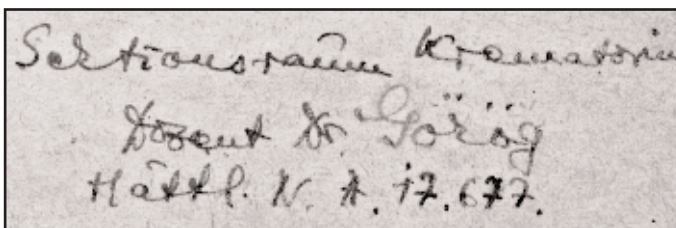 Sektionsraum Krematorium
Dozent Dr. Görög
Häftl. N. A. 17.677.